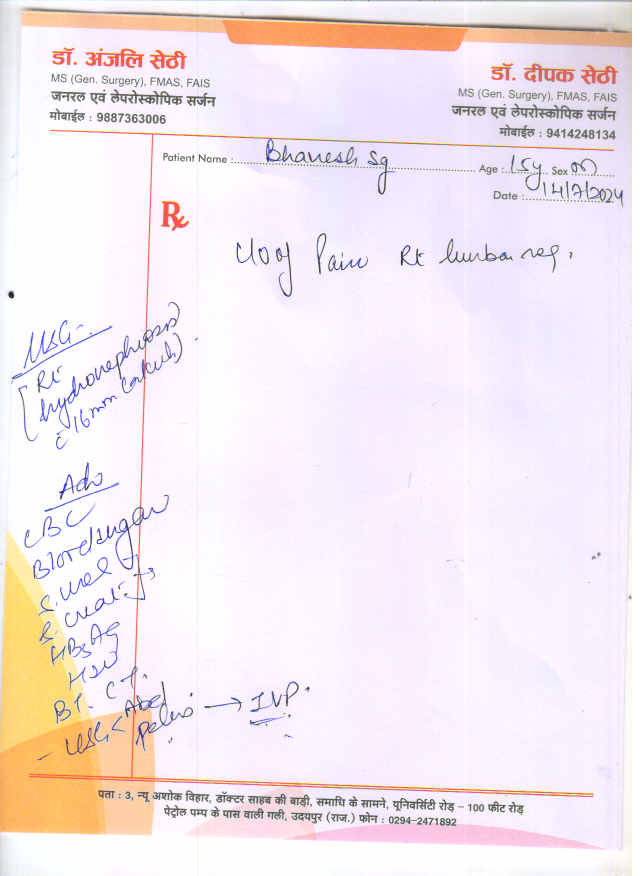 डॉ. अंजलि सेठी
MS (Gen. Surgery), FMAS, FAIS
जनरल एवं लेपरोस्कोपिक सर्जन
मोबाईल : 9887363006
डॉ. दीपक सेठी
MS (Gen. Surgery), FMAS, FAIS
जनरल एवं लेपरोस्कोपिक सर्जन
मोबाईल : 9414248134
Patient Name : Bhavesh Sg Age : 15y Sex M
Date : 14/7/2024
Rx
C/o of Pain Rt lumbar reg.
USG-
Rt
hydronephrosis
c̄ 16mm calculi
Adv
CBC
Blood sugar
S. urea
S. creat
HBsAg
HIV
BT. CT.
- USG < Abd Pelvis → IVP
पता : 3, न्यू अशोक विहार, डॉक्टर साहब की बाड़ी, समाधि के सामने, यूनिवर्सिटी रोड़ – 100 फीट रोड़
पेट्रोल पम्प के पास वाली गली, उदयपुर (राज.) फोन : 0294-2471892